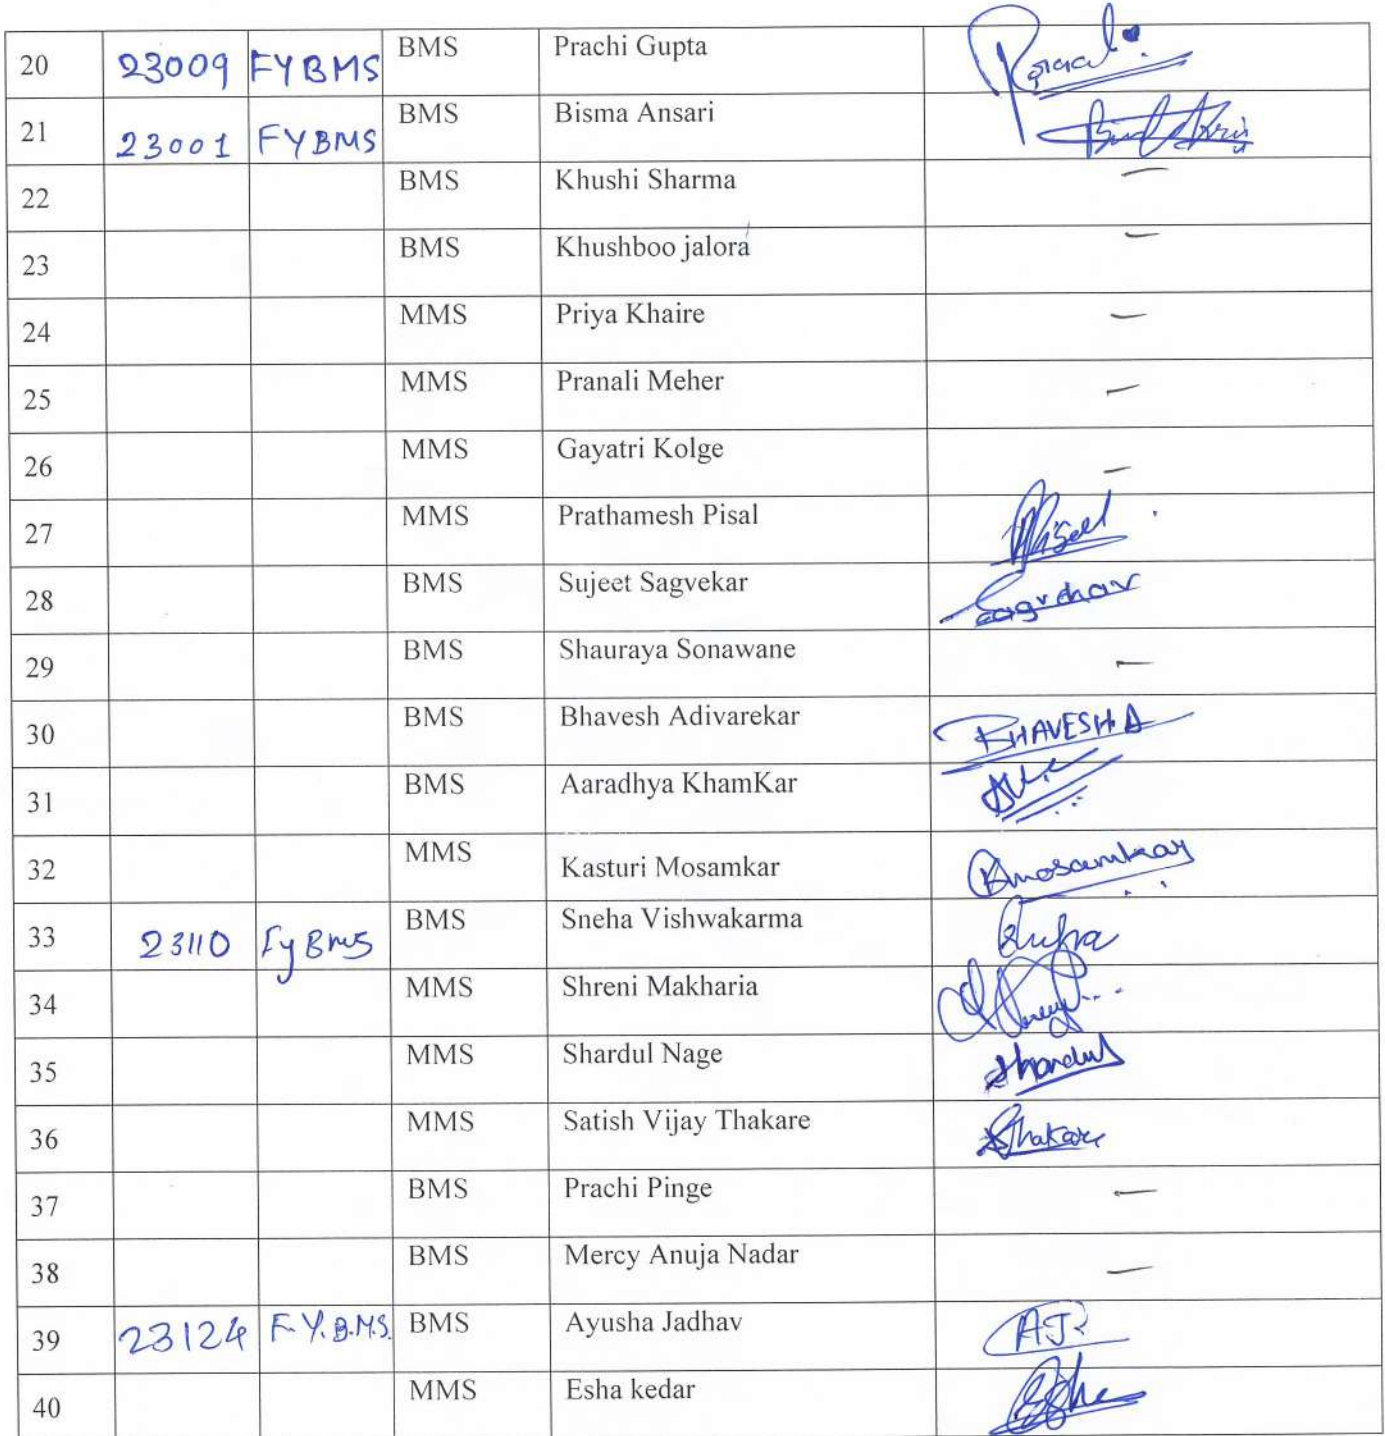 20 23009 FYBMS BMS Prachi Gupta
21 23001 FYBMS BMS Bisma Ansari
22 BMS Khushi Sharma —
23 BMS Khushboo jalora —
24 MMS Priya Khaire —
25 MMS Pranali Meher —
26 MMS Gayatri Kolge —
27 MMS Prathamesh Pisal
28 BMS Sujeet Sagvekar
29 BMS Shauraya Sonawane —
30 BMS Bhavesh Adivarekar BHAVESH A
31 BMS Aaradhya KhamKar
32 MMS Kasturi Mosamkar
33 23110 FyBms BMS Sneha Vishwakarma
34 MMS Shreni Makharia
35 MMS Shardul Nage Shardul
36 MMS Satish Vijay Thakare
37 BMS Prachi Pinge —
38 BMS Mercy Anuja Nadar —
39 23124 F.Y.B.M.S. BMS Ayusha Jadhav
40 MMS Esha kedar